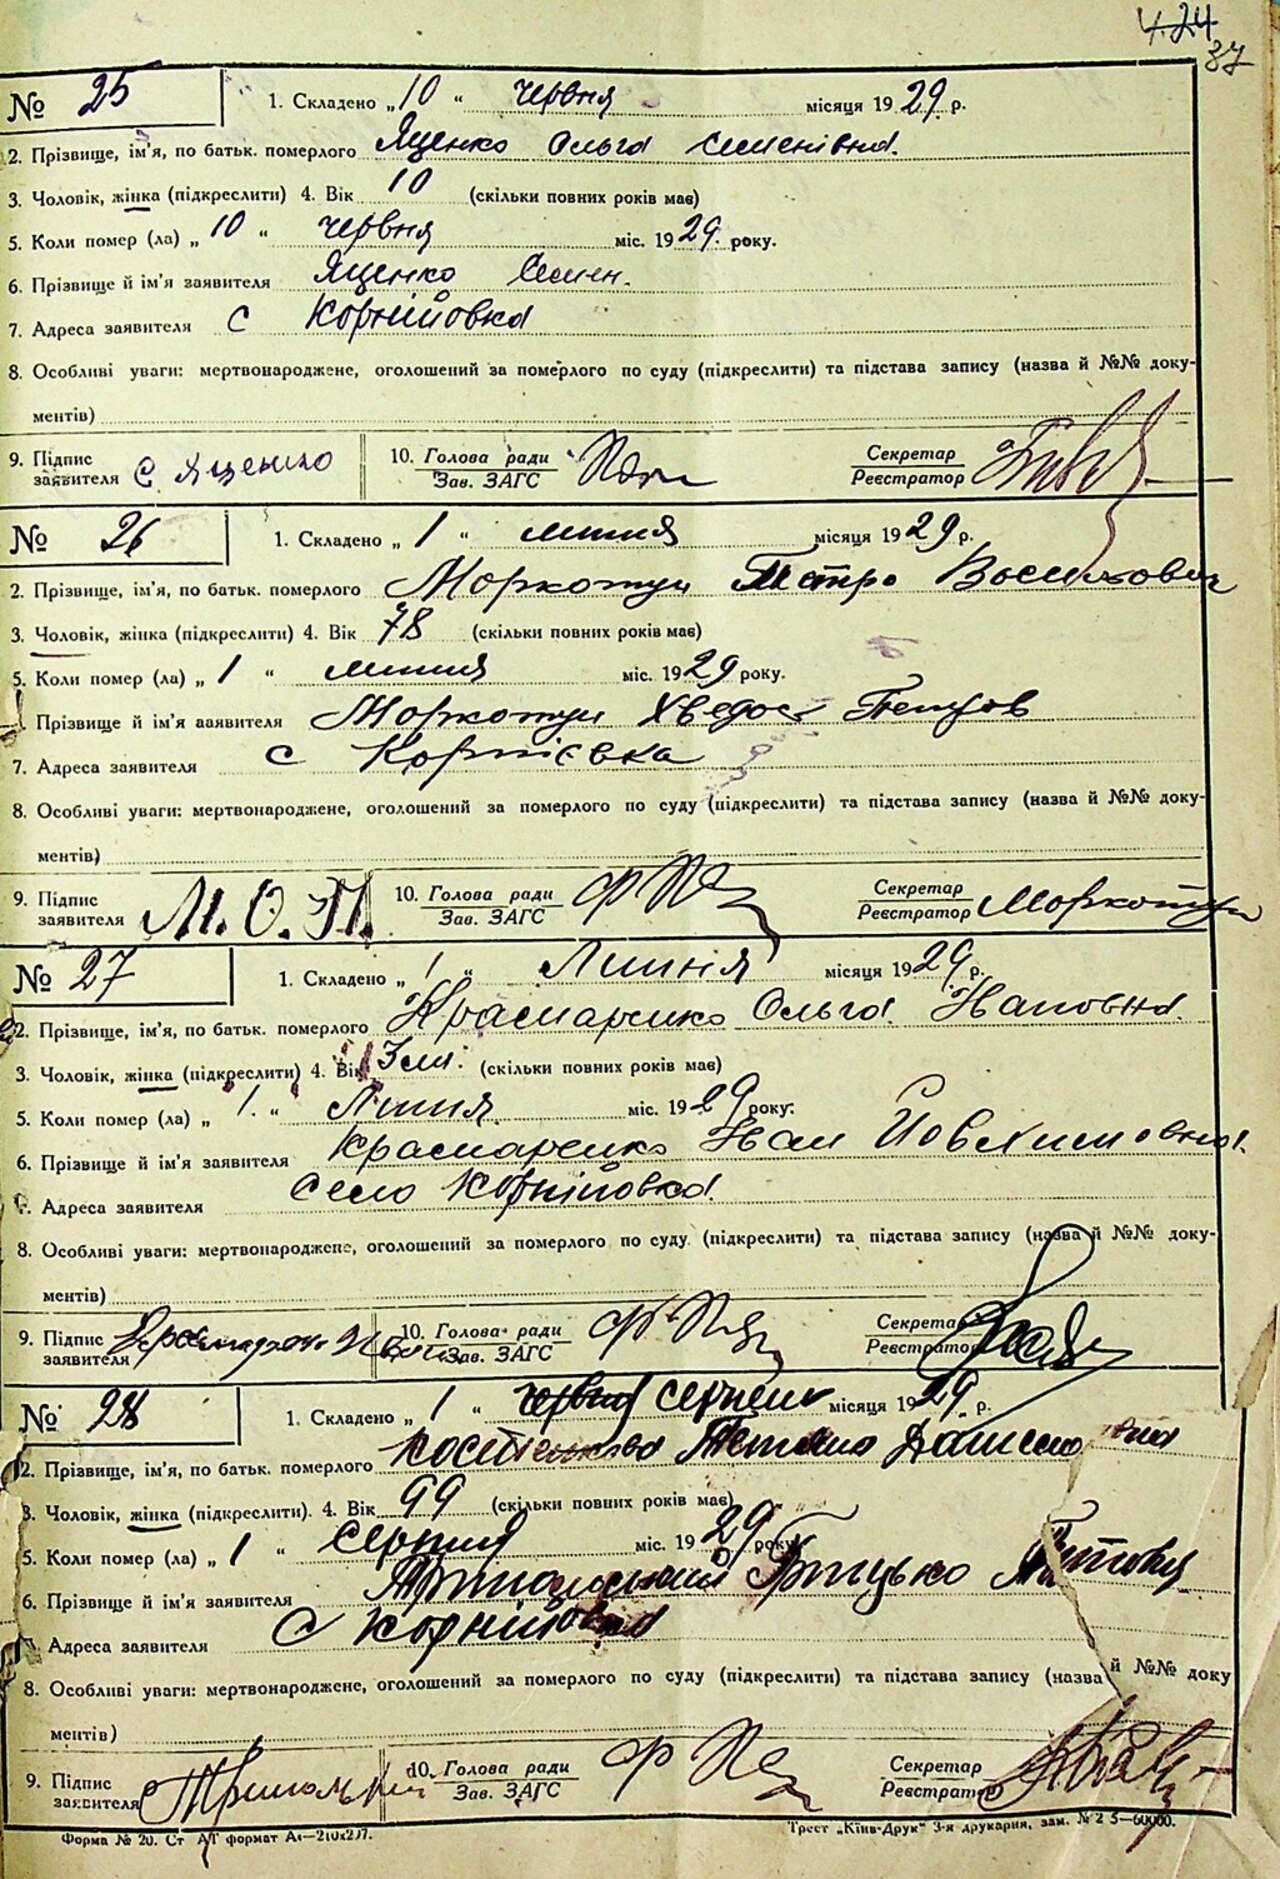 4.24
37
№ 25 1. Складено „ 10 " червня місяця 1929 р.
2. Прізвище, ім'я, по батьк. померлого Яценко Ольга Семенівна.
3. Чоловік, жінка (підкреслити) 4. Вік 10 (скільки повних років має)
5. Коли помер (ла) „ 10 " червня міс. 1929. року.
6. Прізвище й ім'я заявителя Яценко Семен.
7. Адреса заявителя с Корніївка
8. Особливі уваги: мертвонароджене, оголошений за померлого по суду (підкреслити) та підстава запису (назва й №№ доку-
ментів)
9. Підпис заявителя С Яценко 10. Голова ради Зав. ЗАГС Секретар Реєстратор
№ 26 1. Складено „ 1 " липня місяця 1929 р.
2. Прізвище, ім'я, по батьк. померлого Моркотун Петро Васильович
3. Чоловік, жінка (підкреслити) 4. Вік 78 (скільки повних років має)
5. Коли помер (ла) „ 1 " липня міс. 1929 року.
Прізвище й ім'я заявителя Моркотун Хведос Петров
7. Адреса заявителя с Корнієвка
8. Особливі уваги: мертвонароджене, оголошений за померлого по суду (підкреслити) та підстава запису (назва й №№ доку-
ментів)
9. Підпис заявителя М.О.П. 10. Голова ради Зав. ЗАГС Секретар Реєстратор Моркотун
№ 27 1. Складено „ 1 " Липня місяця 1929. р.
2. Прізвище, ім'я, по батьк. померлого Ольга
3. Чоловік, жінка (підкреслити) 4. Вік (скільки повних років має)
5. Коли помер (ла) „ 1. " Липня міс. 1929 року.
6. Прізвище й ім'я заявителя Іван
7. Адреса заявителя Село Корніївка.
8. Особливі уваги: мертвонароджене, оголошений за померлого по суду (підкреслити) та підстава запису (назва й №№ доку-
ментів)
9. Підпис заявителя 10. Голова ради Зав. ЗАГС Секретар Реєстратор
№ 28 1. Складено „ 1 " червня серпень місяця 1929. р.
2. Прізвище, ім'я, по батьк. померлого Тетяна
3. Чоловік, жінка (підкреслити). 4. Вік 99 (скільки повних років має)
5. Коли помер (ла) „ 1 " Серпня міс. 1929 року
6. Прізвище й ім'я заявителя Грицько
Адреса заявителя С Корніївка
8. Особливі уваги: мертвонароджене, оголошений за померлого по суду (підкреслити) та підстава запису (назва й №№ доку
ментів)
9. Підпис заявителя 10. Голова ради Зав. ЗАГС Секретар Реєстратор
Форма № 20. Ст АТ формат А4—210х297. Трест „Київ-Друк" 3-я друкарня, зам. № 2 5—60000.